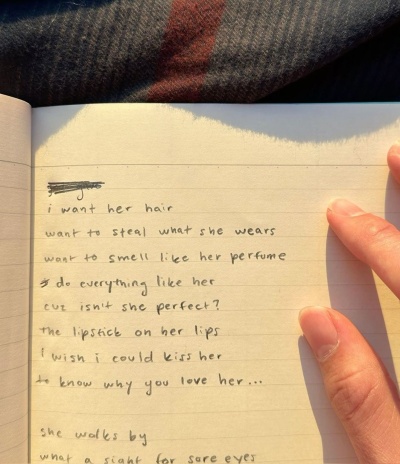 i want her hair
want to steal what she wears
want to smell like her perfume
do everything like her
cuz isn't she perfect?
the lipstick on her lips
I wish i could kiss her
to know why you love her...
she walks by
what a sight for sore eyes